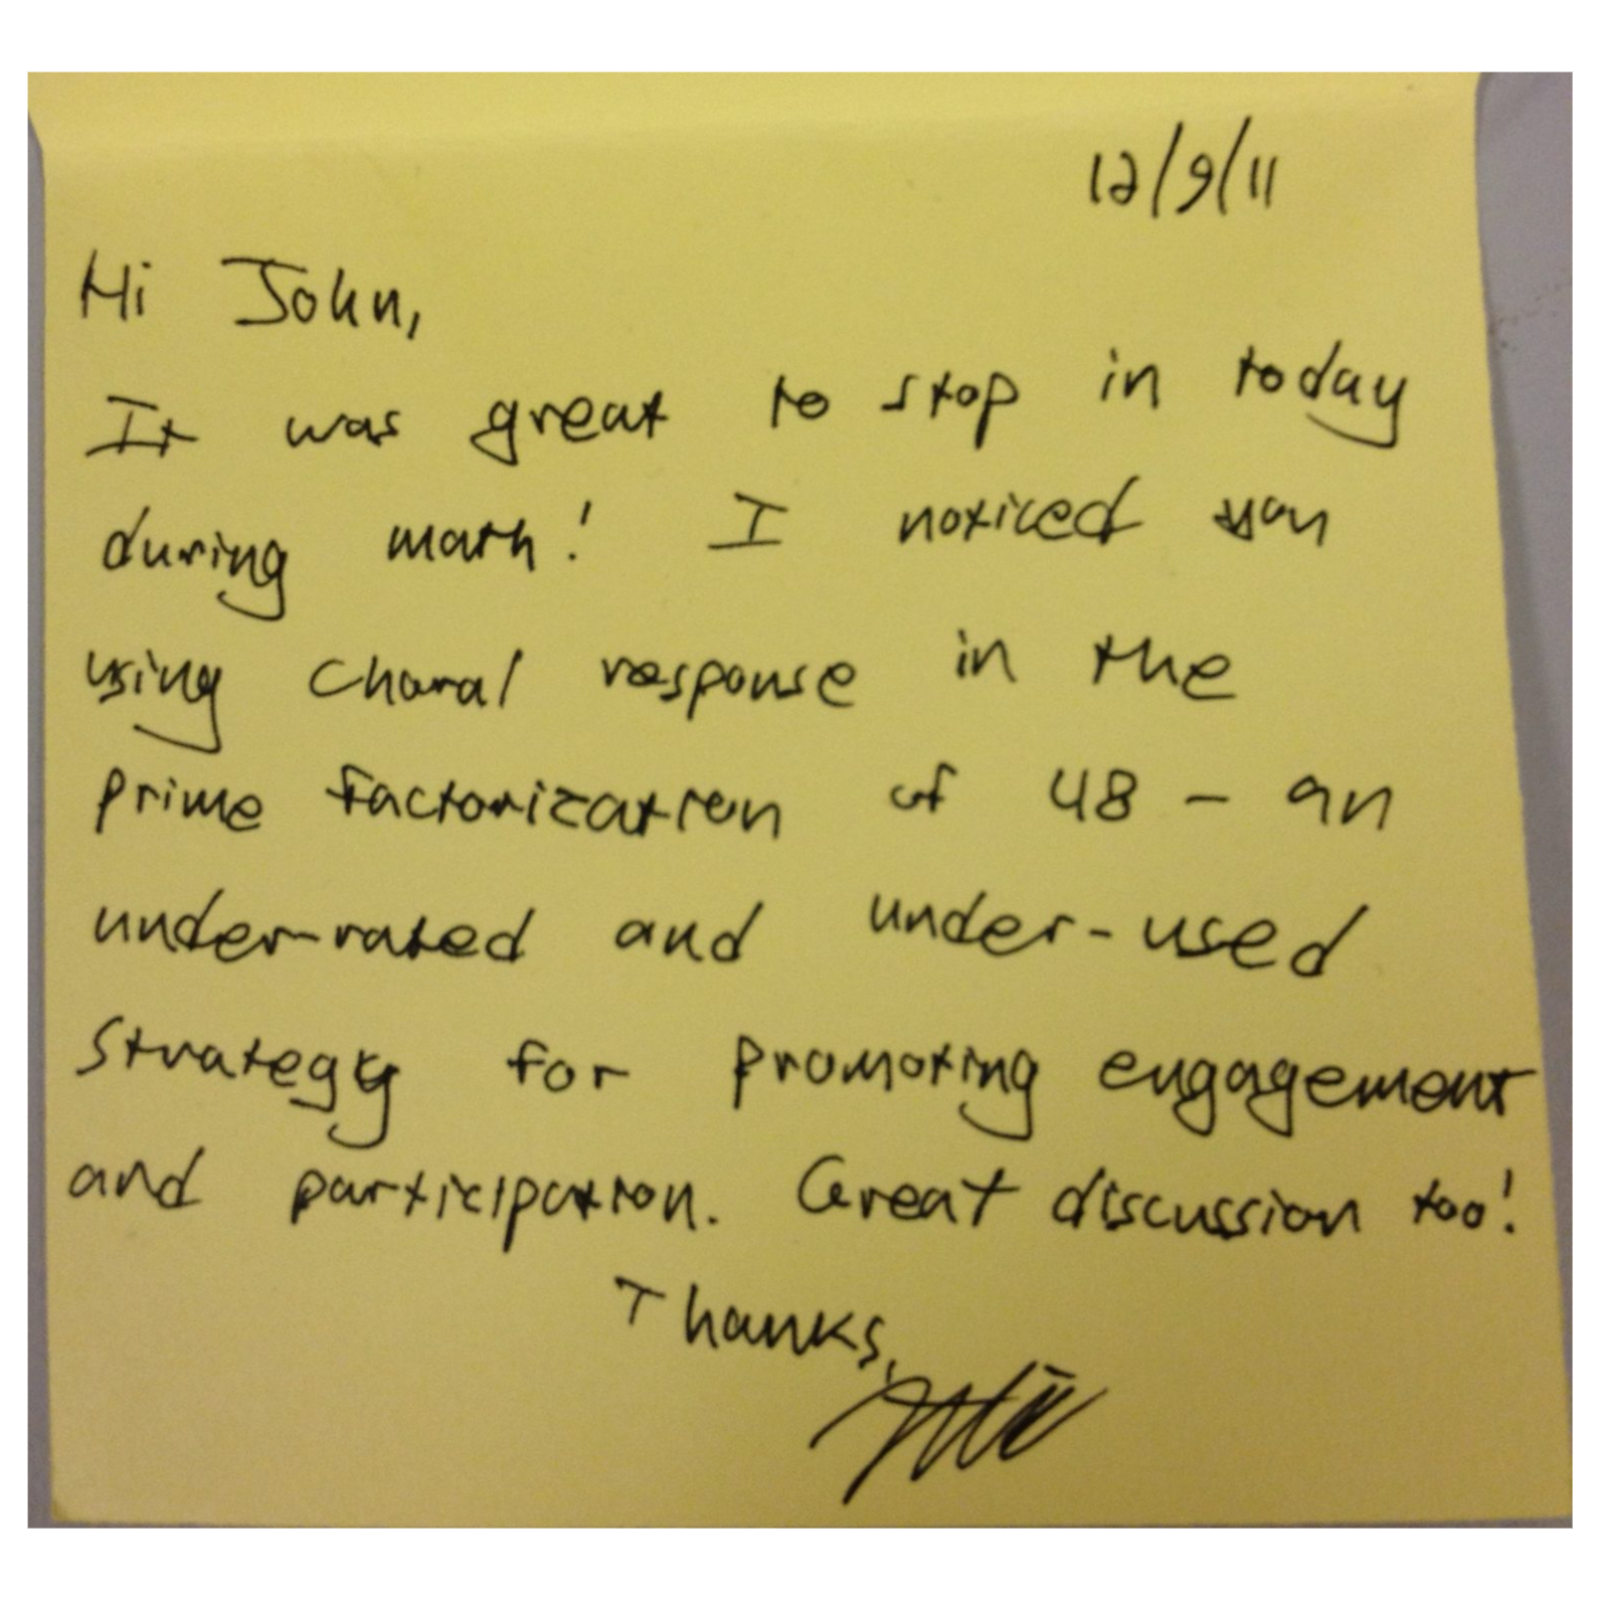 12/9/11
Hi John,
It was great to stop in today
during math! I noticed you
using choral response in the
prime factorization of 48 - an
under-rated and under-used
strategy for promoting engagement
and participation. Great discussion too!
Thanks,